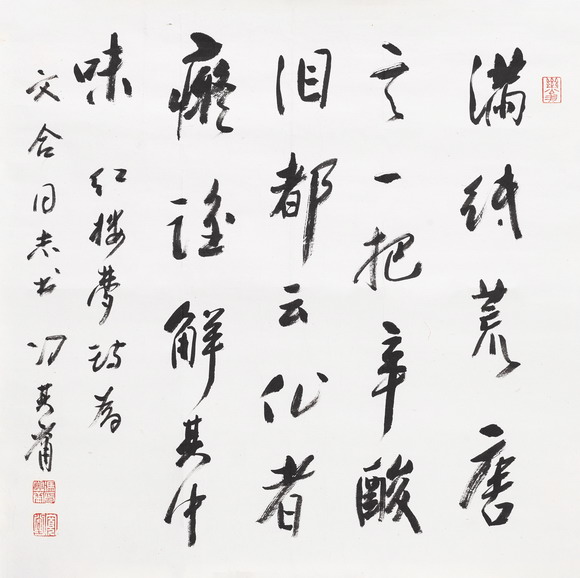 满纸荒唐
言一把辛酸
泪都云作者
癡谁解其中
味
红楼夢诗为
文合同志书 冯其庸